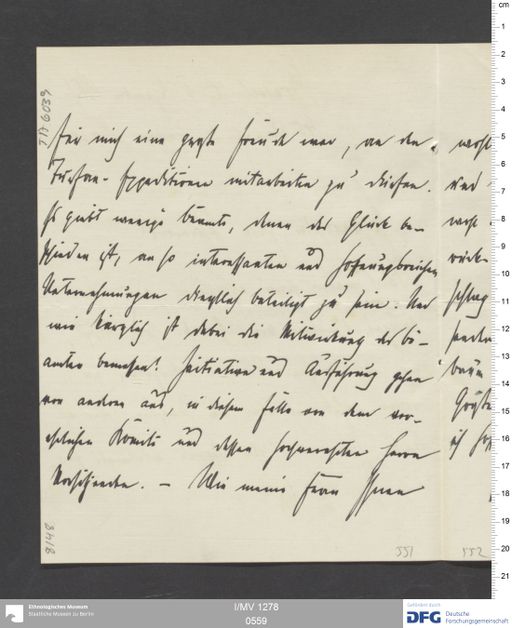 TA 6039
für mich eine große Freude war, an den
Turfan-Expeditionen mitarbeiten zu dürfen.
Es giebt wenige Beamte, denen das Glück be-
schieden ist, an so interessanten und hoffnungsreichen
Unternehmungen dienstlich beteiligt zu sein. Und
wie kärglich ist dabei die Mitwirkung des Be-
amten bemessen! Initiative und Ausführung gehen
von andren aus, in diesem Falle von dem vor-
trefflichen Komite und dessen hochverehrten Herrn
Vorsitzenden. – Wie meine Frau Ihnen
8148
551
552
Ethnologisches Museum
Staatliche Museen zu Berlin
I/MV 1278
0559
Gefördert durch
DFG Deutsche
Forschungsgemeinschaft
cm
1
2
3
4
5
6
7
8
9
10
11
12
13
14
15
16
17
18
19
20
21